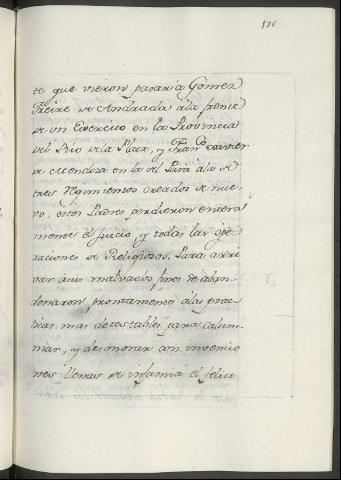 176
te que vieron pasar à Gomez
Freire de Andrada ala frente
de un Exercito en la Provincia
del Rio dela Plata, y Franco Xavier
de Mendoza en la del Pará ala de
tres Regimientos creados de nue-
vo, estos Padres perdieron entera
mente el Juicio, y todas las ope
raciones de Religiosos. Para arri
var asus malvados fines se aban
donaron prontamente alas prac
ticas mas detestables para calum
niar, y desmorar con invencio
nes llenas de infamia el felici